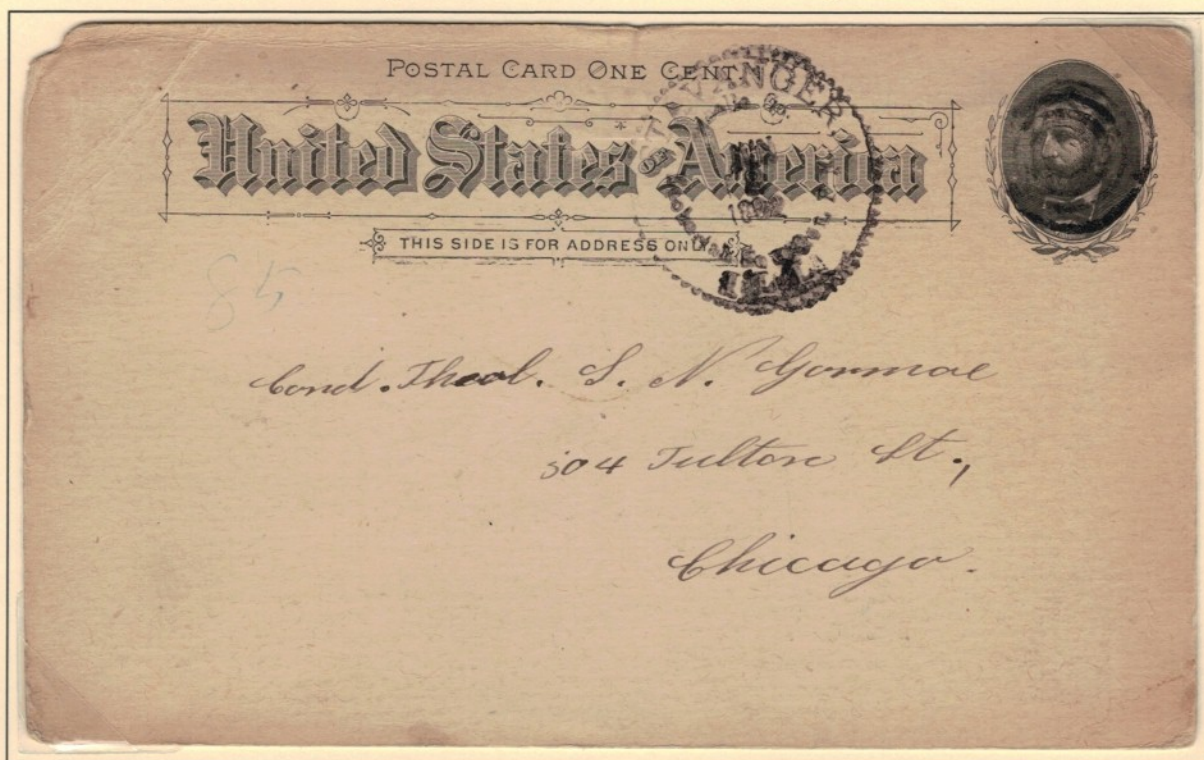 POSTAL CARD ONE CENT
United States OF America
THIS SIDE IS FOR ADDRESS ONLY
85
Cand. Theol. S. N. Gormoe
504 Fulton St.,
Chicago.